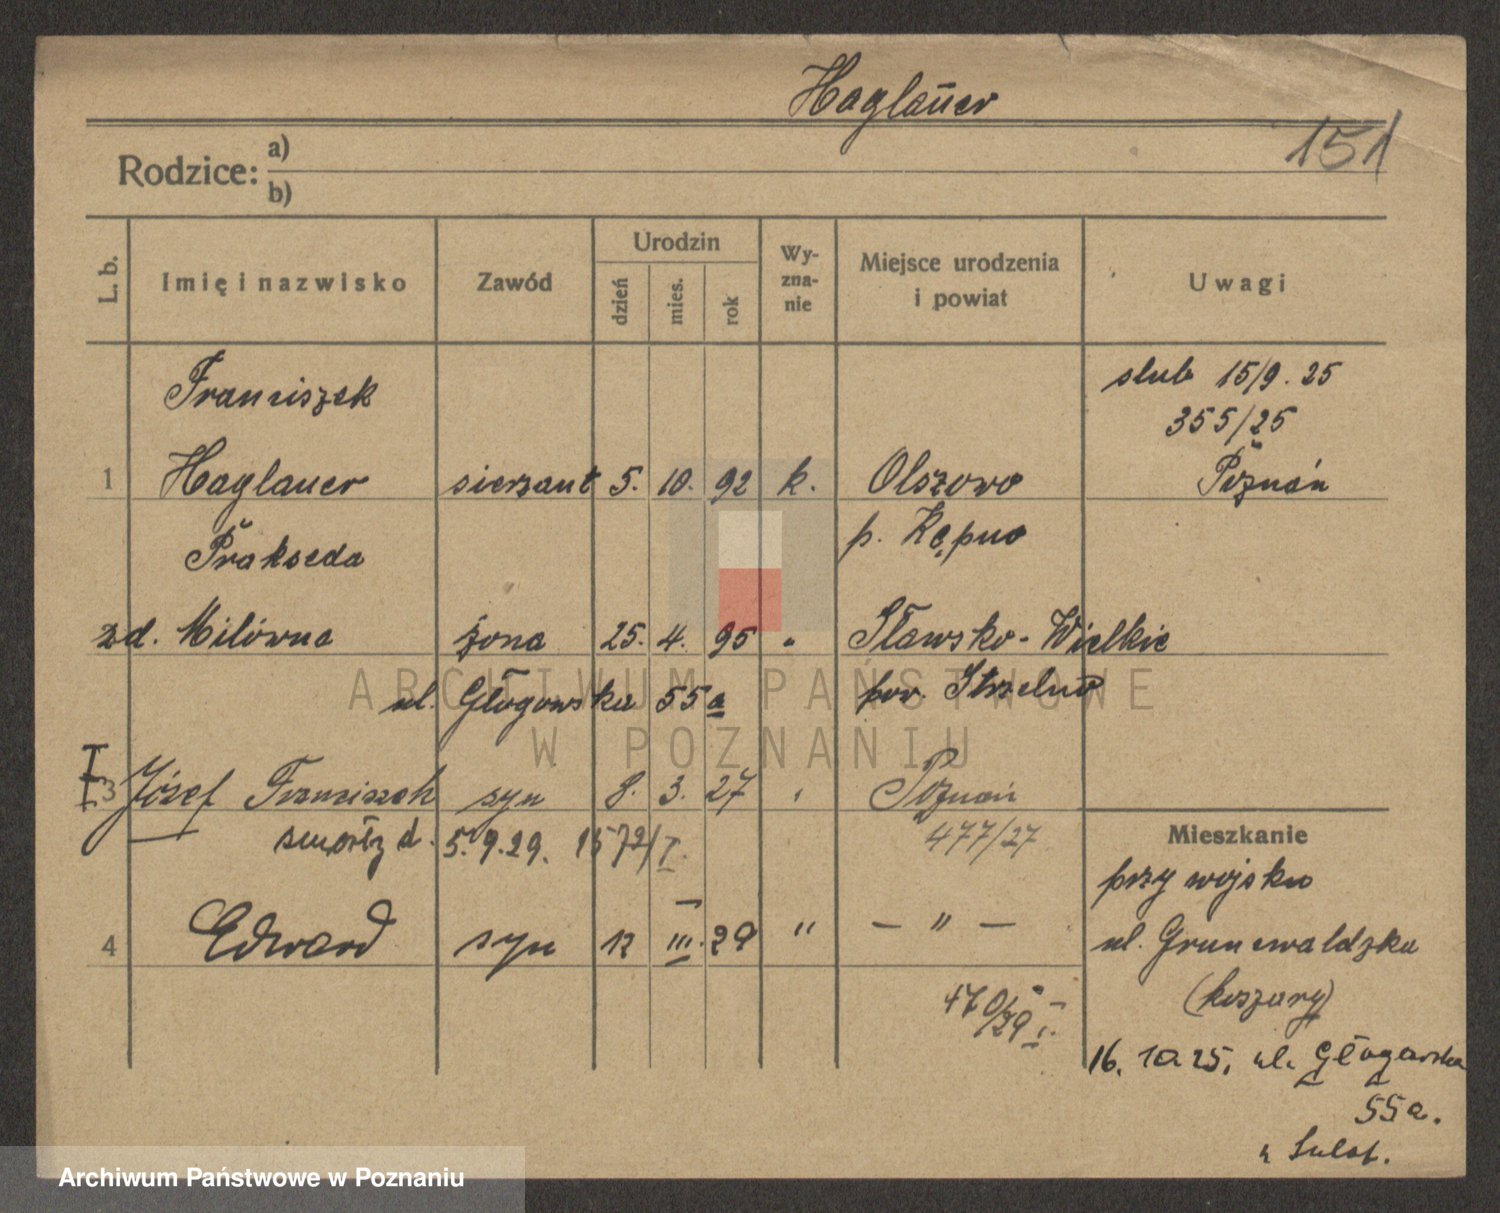 Haglaŭer
151
Rodzice: a)
b)
L. b. Imię i nazwisko Zawód Urodzin dzień mies. rok Wy-zna-nie Miejsce urodzenia i powiat Uwagi
Franciszek ślub 15/9. 25
355/25
1 Haglauer sierżant 5. 10. 92 k. Olszowo Poznań
p. Kępno
Prakseda
zd. Milówna żona 25. 4. 95 " Sławsko-Wielkie
ul. Głogowska 55a pow. Strzelno
3 Józef Franciszek syn 8. 3. 27 " Poznań
zmarł d. 5.9.29. 1572/I. 477/27
Mieszkanie
przy wojsku
4 Edward syn 12 III. 29 " — " — ul. Grunwaldzka
470/29 I. (koszary)
16. 10 25. ul. Głogowska
55a.
ARCHIWUM PAŃSTWOWE
W POZNANIU
Archiwum Państwowe w Poznaniu